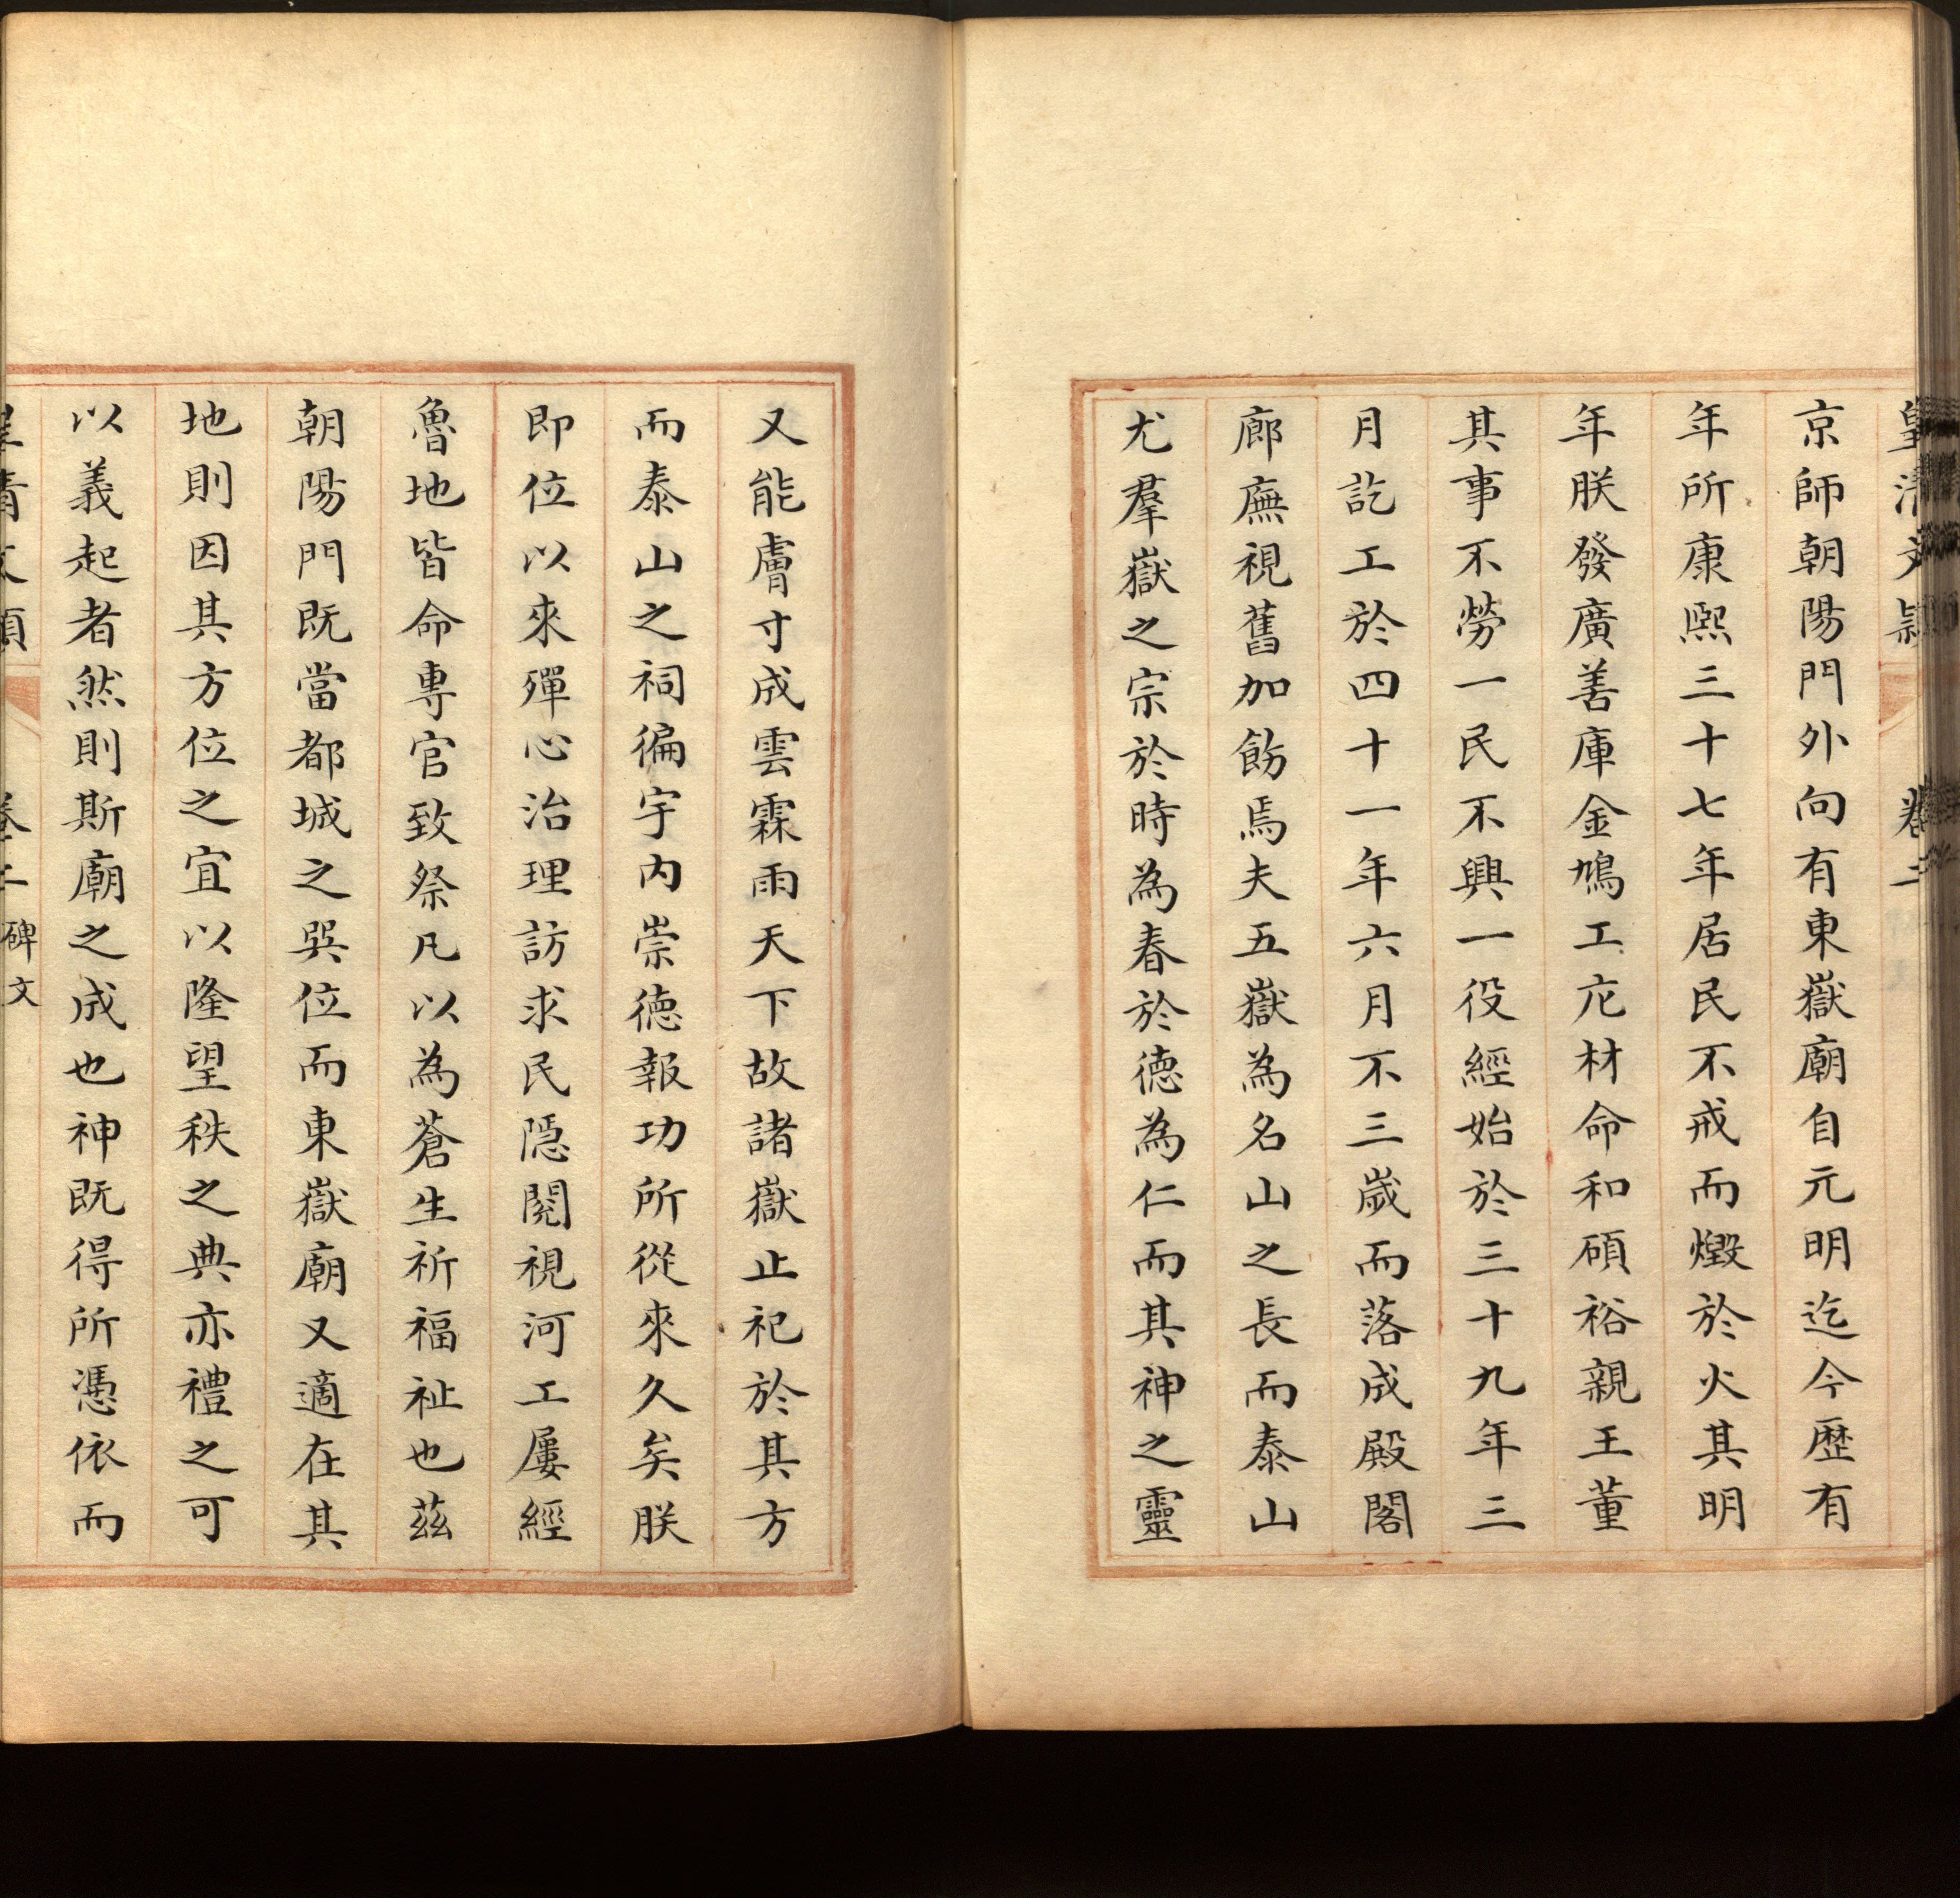 皇清文穎　卷二
京師朝陽門外向有東嶽廟自元明迄今歴有
年所康熙三十七年居民不戒而燬於火其明
年朕發廣善庫金鳩工庀材命和碩裕親王董
其事不勞一民不興一役經始於三十九年三
月訖工於四十一年六月不三歲而落成殿閣
廊廡視舊加飭焉夫五嶽為名山之長而泰山
尤羣嶽之宗於時為春於德為仁而其神之靈
又能膚寸成雲霖雨天下故諸嶽止祀於其方
而泰山之祠徧宇内崇德報功所從來久矣朕
即位以來殫心治理訪求民隠閱視河工屢經
魯地皆命專官致祭凡以為蒼生祈福祉也茲
朝陽門既當都城之巽位而東嶽廟又適在其
地則因其方位之宜以隆望秩之典亦禮之可
以義起者然則斯廟之成也神既得所憑依而
皇清文穎　卷二　碑文